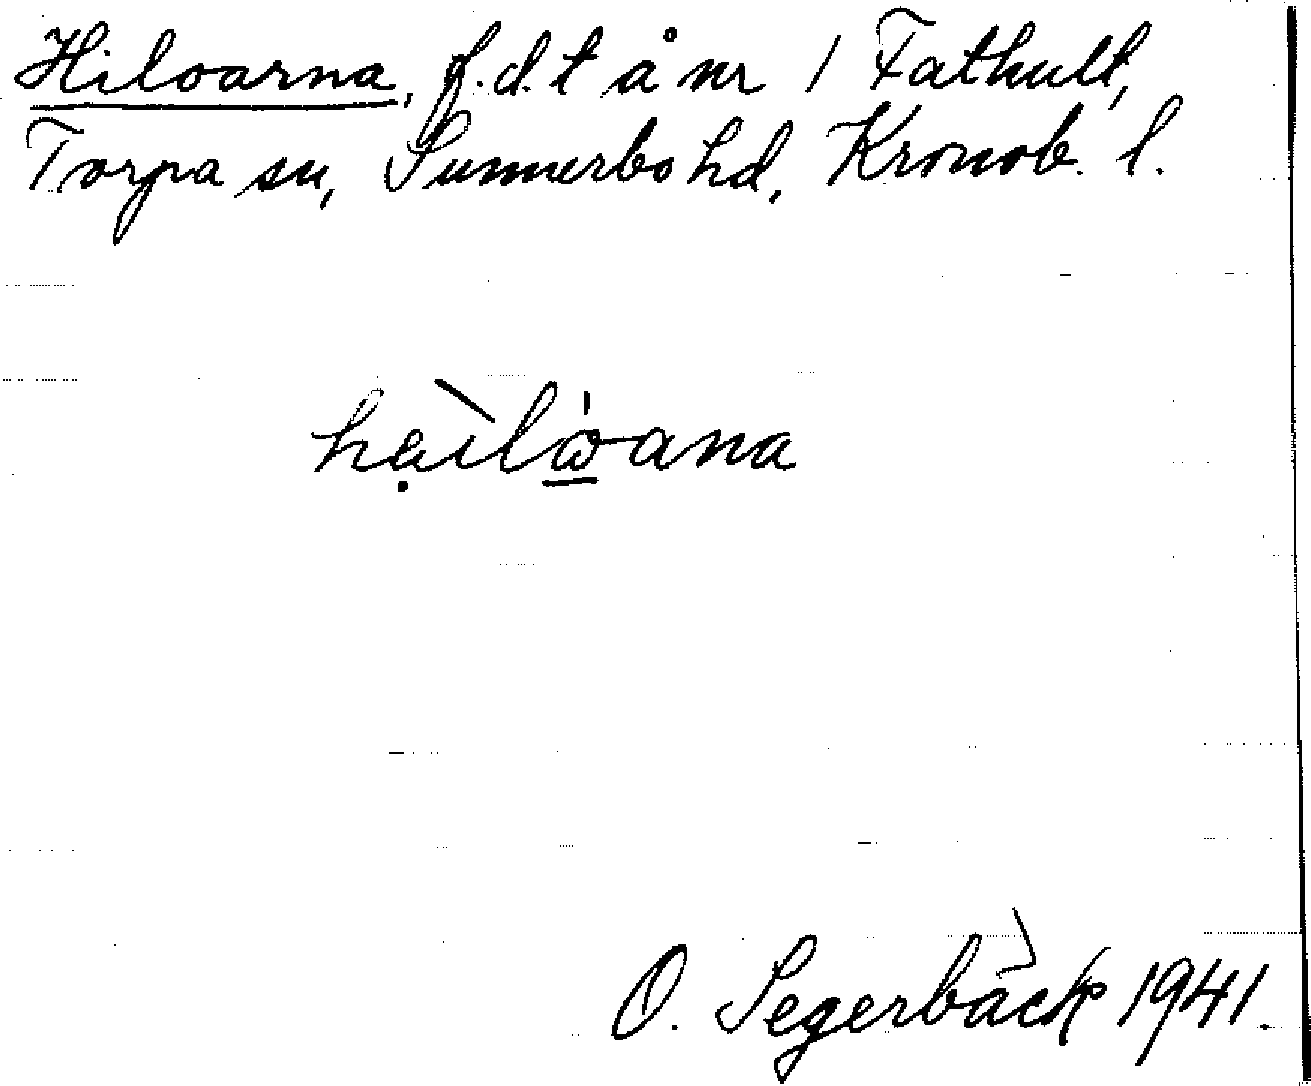 Hiloarna, f.d. t å nr 1 Fathult,
Torpa sn, Sunnerbo hd, Kronob. l.
O. Segerbäck 1941.